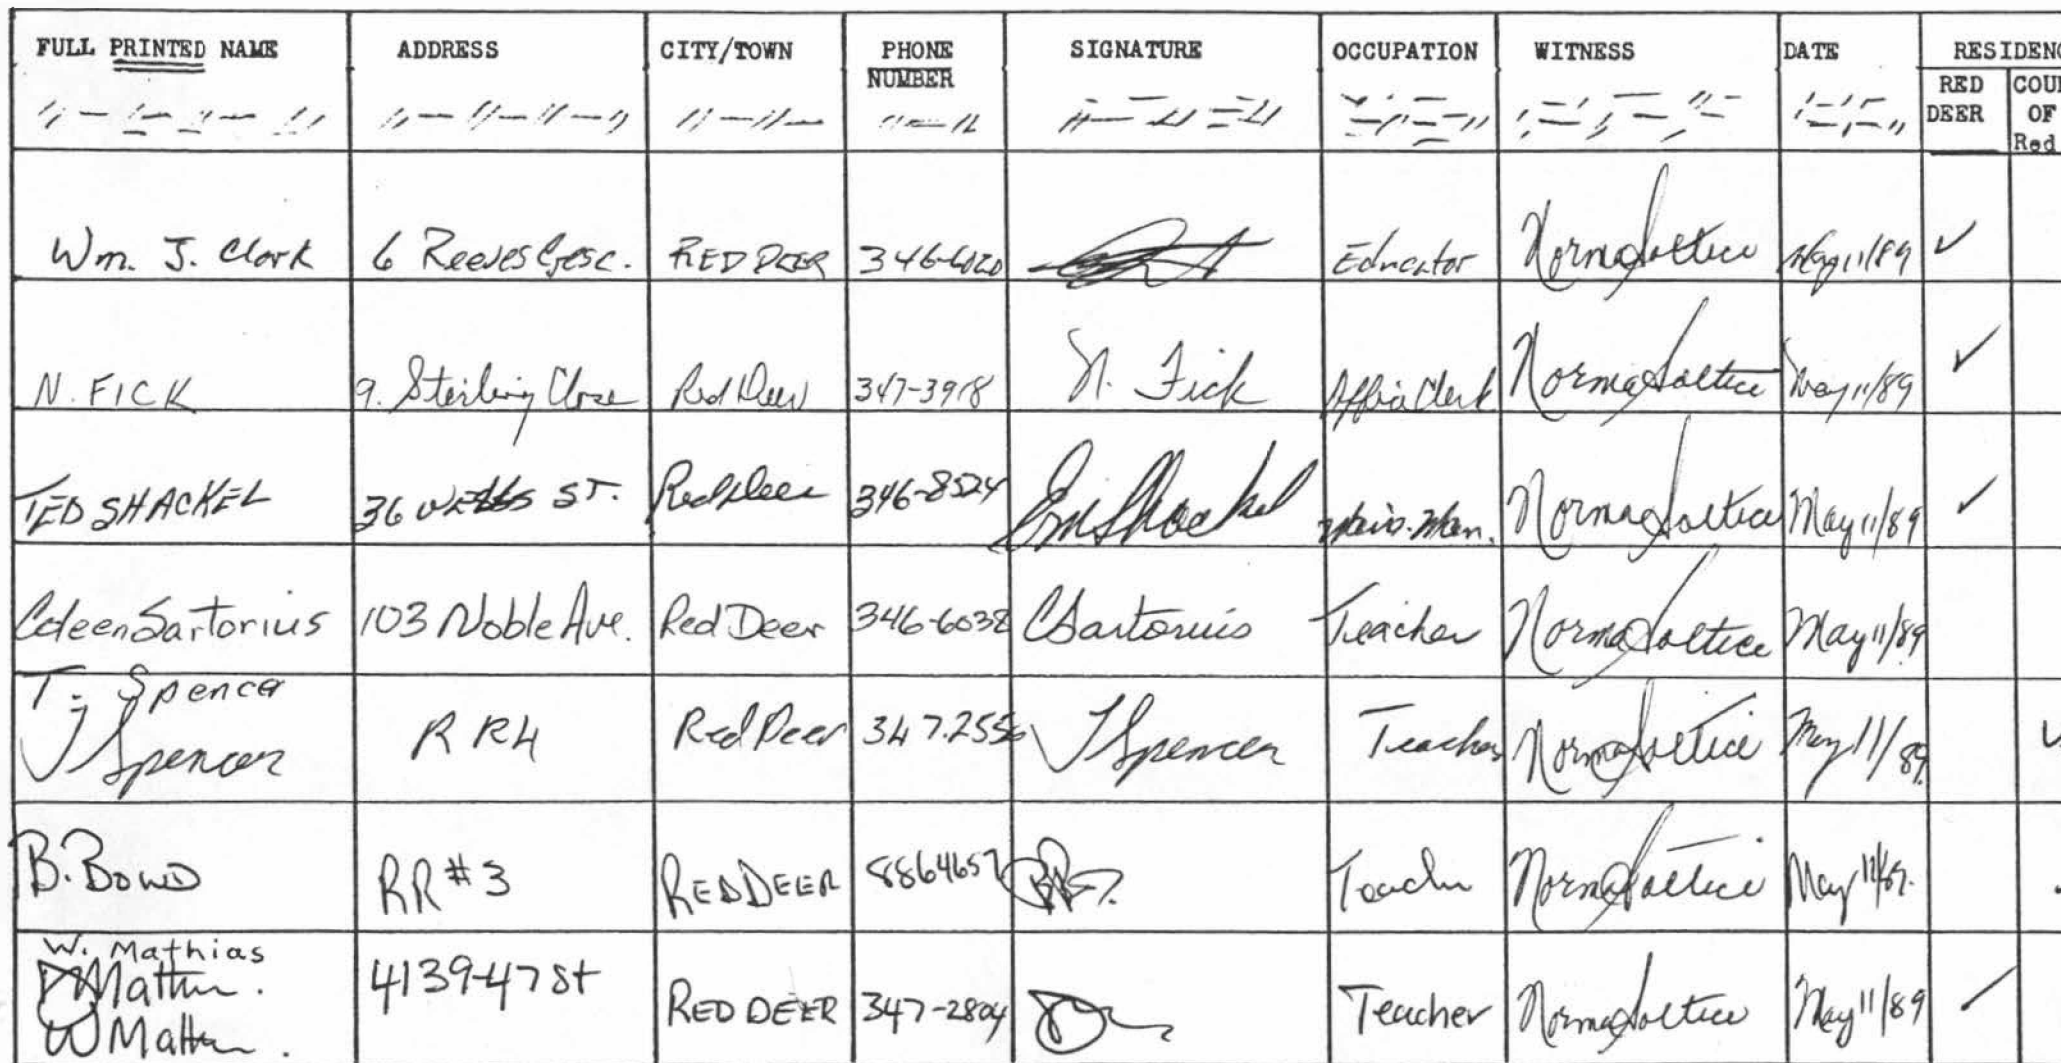 FULL PRINTED NAME ADDRESS CITY/TOWN PHONE NUMBER SIGNATURE OCCUPATION WITNESS DATE RESIDENC
RED DEER COUN OF Red
Wm. J. Clark 6 Reeves Cresc. RED DEER 346-6020 Educator Norma Soltice May 11/89 ✓
N. FICK 9. Sterling Close Red Deer 347-3918 N. Fick Office Clerk Norma Soltice May 11/89 ✓
TED SHACKEL 36 WELLS ST. Red Deer 346-8524 Shackel Man. Norma Soltice May 11/89 ✓
Coleen Sartorius 103 Noble Ave. Red Deer 346-6038 CSartorius Teacher Norma Soltice May 11/89
T. Spencer
T Spencer RR4 Red Deer 347.2556 T Spencer Teacher Norma Soltice May 11/89.
B. BOWD RR #3 RED DEER 8864657 Teacher Norma Soltice May 11/89.
W. Mathias
4139-47 St RED DEER 347-2804 Teacher Norma Soltice May 11/89 ✓